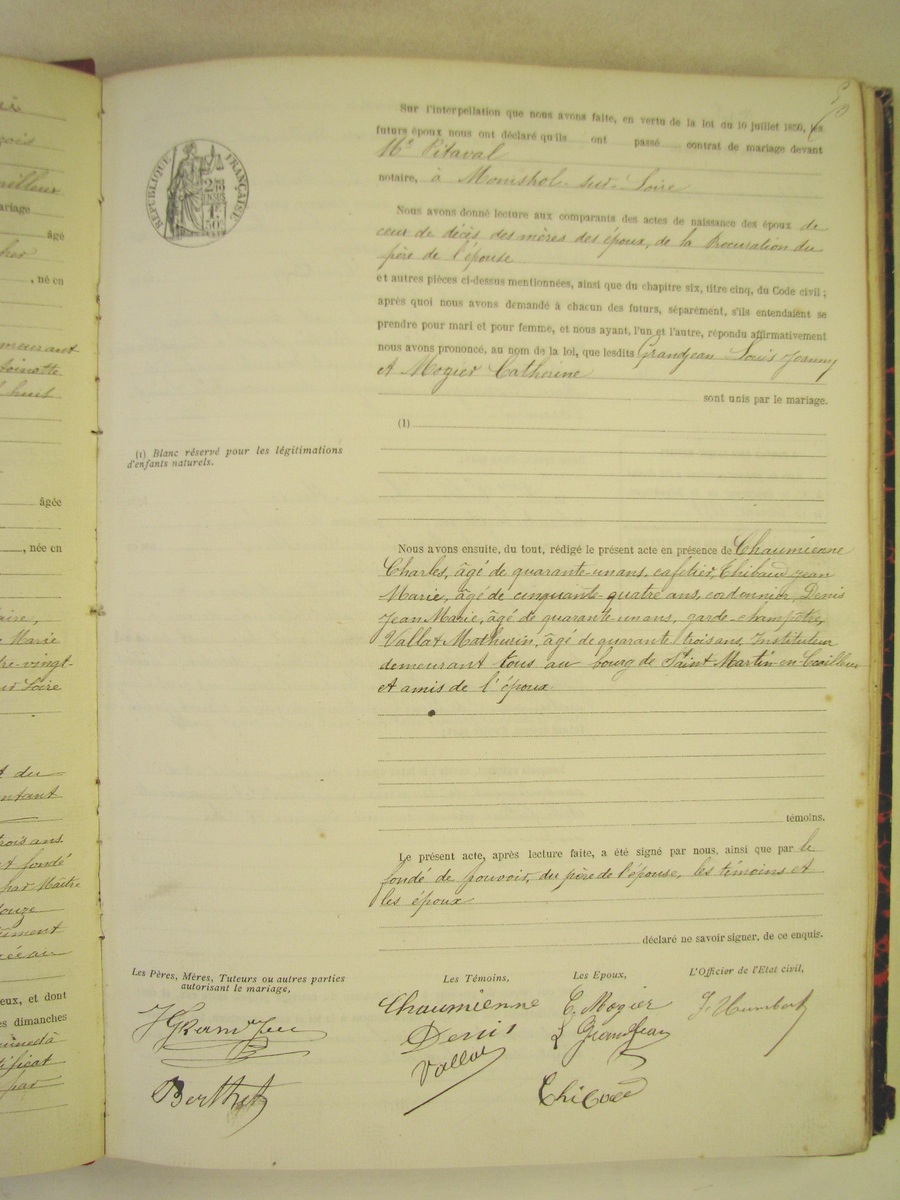 Sur l'interpellation que nous avons faite, en vertu de la loi du 10 juillet 1850, les
futurs époux nous ont déclaré qu'ils ont passé contrat de mariage devant
Me Pitaval
notaire, à Monistrol-sur-Loire
Nous avons donné lecture aux comparants des actes de naissance des époux de
ceux de décès des mères des époux, de la Procuration du
père de l'épouse
et autres pièces ci-dessus mentionnées, ainsi que du chapitre six, titre cinq, du Code civil ;
après quoi nous avons demandé à chacun des futurs, séparément, s'ils entendaient se
prendre pour mari et pour femme, et nous ayant, l'un et l'autre, répondu affirmativement
nous avons prononcé, au nom de la loi, que lesdits Grandjean Louis Joanny
et Mogier Catherine
sont unis par le mariage.
(1)
(1) Blanc réservé pour les légitimations
d'enfants naturels.
Nous avons ensuite, du tout, rédigé le présent acte en présence de Chaumienne
Charles, âgé de quarante-un ans, cafetier, Thibaud Jean
Marie, âgé de cinquante quatre ans, cordonnier, Denis
Jean Marie, âgé de quarante un ans, garde-champêtre,
Vallat Mathurin, âgé de quarante trois ans, Instituteur
demeurant tous au bourg de Saint Martin-en-Coailleux
et amis de l'époux
témoins.
Le présent acte, après lecture faite, a été signé par nous, ainsi que par le
fondé de pouvoir, du père de l'épouse, les témoins et
les époux
déclaré ne savoir signer, de ce enquis.
Les Pères, Mères, Tuteurs ou autres parties
autorisant le mariage,
Les Témoins,
Les Epoux,
L'Officier de l'Etat civil,
Chaumienne
C. Mogier
J. Humbert
Denis
L Grandjean
Vallat
Berthet
Thibaud
RÉPUBLIQUE FRANÇAISE
âgé
, né en
âgée
, née en
eux, et dont
es dimanches